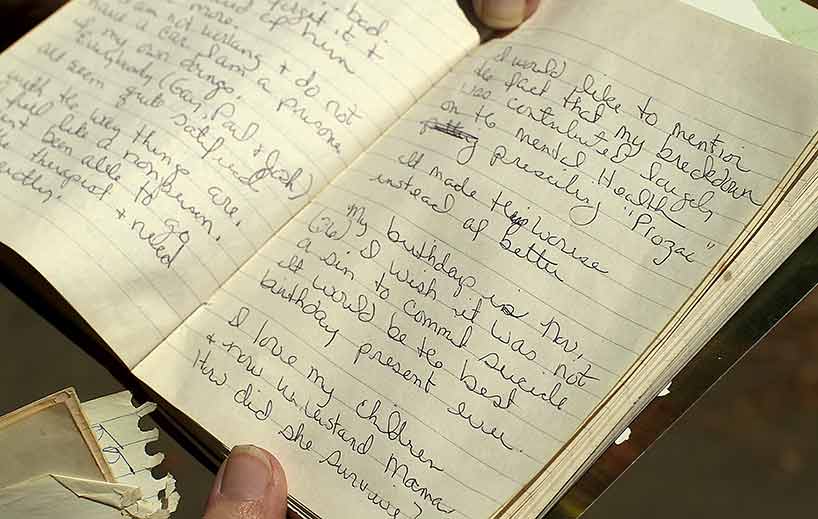 forget it &
of him
more.
I am not working & do not
have a car. I am a prisoner
of my own
Everybody (Gary, Paul & Josh)
all seem quite satisfied
with the way things are.
I feel like a nonperson.
been able to go
therapist & need
I would like to mention
the fact that my breckdown
was contributed largely
on the mental Health
presciling "Prozac"
it made things worse
instead of better
My birthday is Nov,
(26) I wish it was not
a sin to commit suicide
it would be the best
birthday present ever.
I love my children
& now understand Mama
How did she survive?